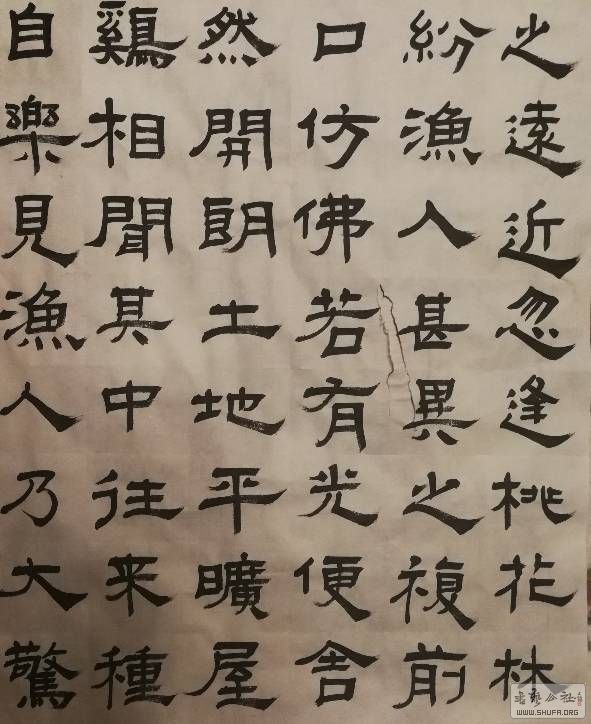 之遠近忽逢桃花林
紛漁人甚異之複前
口仿佛若有光便舍
然開朗土地平曠屋
鷄相聞其中往来種
自樂見漁人乃大驚
书艺公社
WWW.SHUFA.ORG